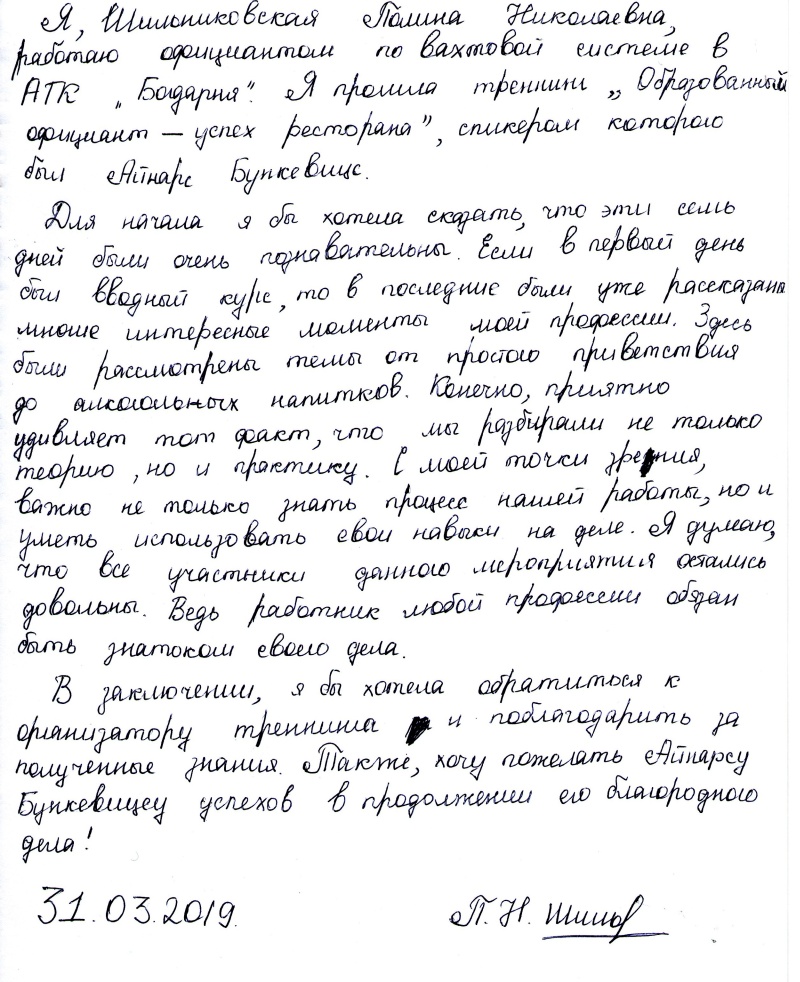 Я, Шильниковская Полина Николаевна,
работаю официантом по вахтовой системе в
АТК „Богдарня". Я прошла тренинг „Образованный
официант — успех ресторана", спикером которого
был Айнарс Бункевицс.
Для начала я бы хотела сказать, что эти семь
дней были очень познавательны. Если в первый день
был вводный курс, то в последние были уже рассказаны
многие интересные моменты моей профессии. Здесь
были рассмотрены темы от простого приветствия
до алкогольных напитков. Конечно, приятно
удивляет тот факт, что мы разбирали не только
теорию, но и практику. С моей точки зрения,
важно не только знать процесс нашей работы, но и
уметь использовать свои навыки на деле. Я думаю,
что все участники данного мероприятия остались
довольны. Ведь работник любой профессии обязан
быть знатоком своего дела.
В заключении, я бы хотела обратиться к
организатору тренинга и поблагодарить за
полученные знания. Также, хочу пожелать Айнарсу
Бункевицсу успехов в продолжении его благородного
дела!
31.03.2019 П. Н. Шильн